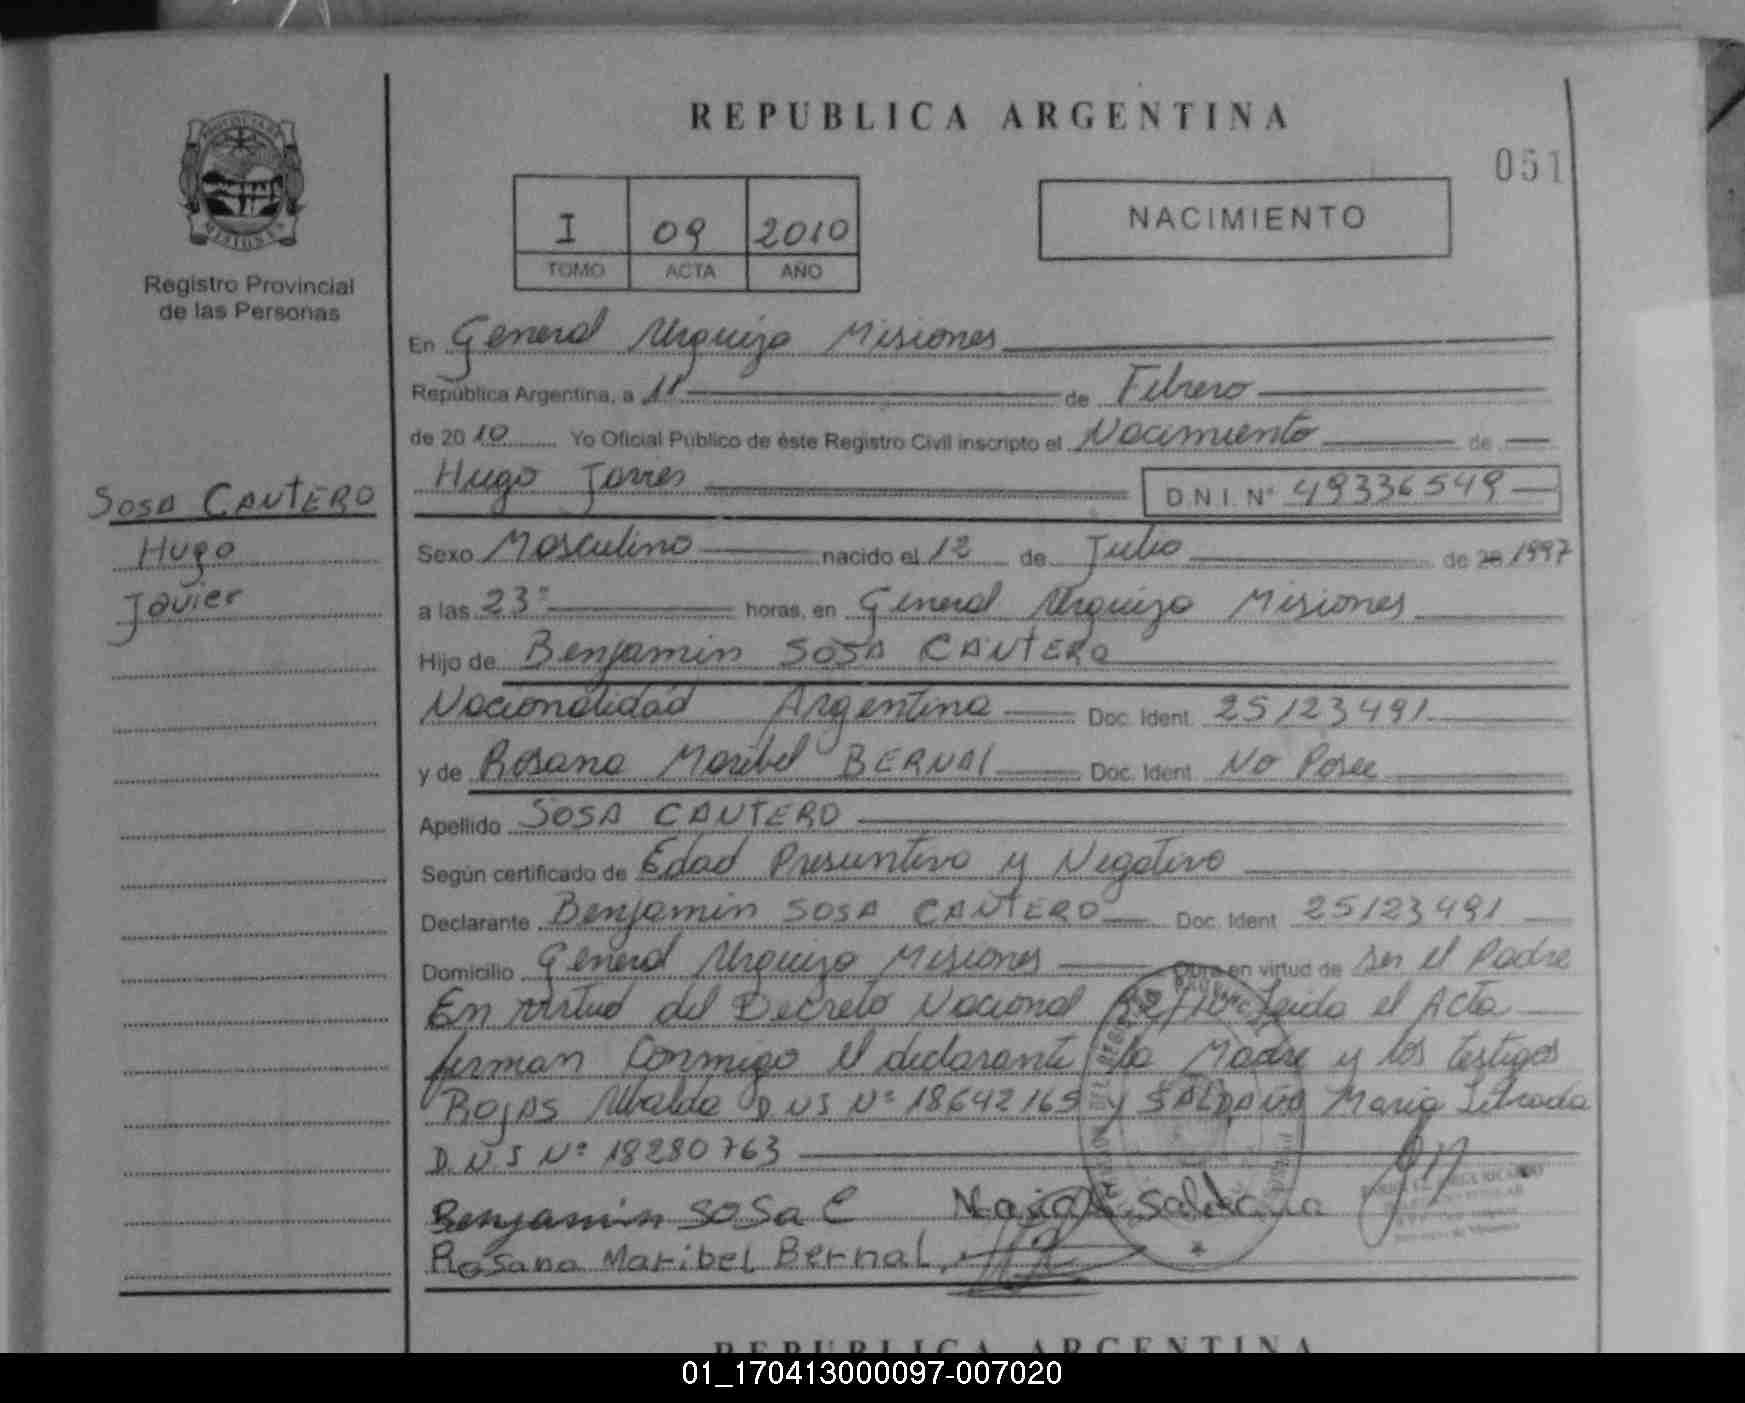 REPUBLICA ARGENTINA
051
PROVINCIA DE
MISIONES
Registro Provincial
de las Personas
I 09 2010
TOMO ACTA AÑO
NACIMIENTO
En General Urquiza Misiones
República Argentina, a 11 de Febrero
de 20 10 Yo Oficial Público de éste Registro Civil inscripto el Nacimiento de
Hugo Javier D.N.I. N° 49336549
SOSA CANTERO
Hugo
Javier
Sexo Masculino nacido el 12 de Julio de 20 1997
a las 23 horas, en General Urquiza Misiones
Hijo de Benjamin SOSA CANTERO
Nacionalidad Argentina Doc. Ident. 25123491
y de Rosana Maribel BERNAL Doc. Ident No Posee
Apellido SOSA CANTERO
Según certificado de Edad Presuntiva y Negativo
Declarante Benjamin SOSA CANTERO Doc. Ident 25123491
Domicilio General Urquiza Misiones Obra en virtud de ser el Padre
En virtud del Decreto Nacional Leida el Acta
firman Conmigo el declarante la Madre y los testigos
ROJAS Ubaldo DNI N° 18642165 y SALDAÑA Maria Librada
D.N.I N° 18280763
Benjamin SOSa C Maria L Saldaña
Rosana Maribel Bernal
REPUBLICA ARGENTINA
01_170413000097-007020